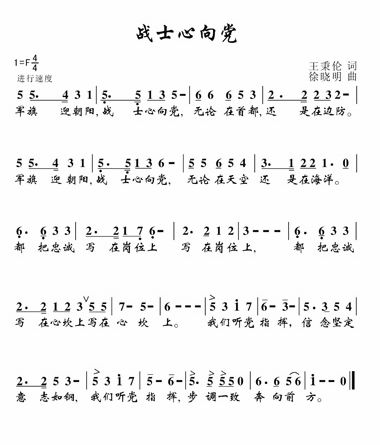 战士心向党
1=F 4/4
王秉伦 词
进行速度
徐晓明 曲
5 5. 4 3 1 | 5 5. 5 1 3 5 - | 6 6 5. 4 3 | 2. 2 2 3 2 - |
军旗 迎朝阳,战 士心向党, 无论 在首都,还 是在边防。
5 5. 4 3 1 | 5 5. 5 1 3 6 - | 7 6 5. 4 3 | 3. 1 2 2 1. 0 |
军旗 迎朝阳,战 士心向党, 无论 在天空 还 是在海洋。
6. 6 3 3 | 2. 2 1 7 6 - | 2. 2 1 2 | 3 - - - | 6. 6 3 3 |
都 把忠诚 写 在岗位上 写 在岗位上, 都 把忠诚
2. 2 1 2 3 5 5 | 7 - 5 - | 6 - - - | 5 3 1 7 | 6 - 3 - | 5 5. 3 1 |
写 在心坎上写在 心 坎 上。 我们听党 指 挥, 信 念坚定
2. 2 5 3 - | 5 3 1 7 | 6 - 5 - | 5. 5 5 5 0 | 6. 6 5 6 | 1 - - - | 1 0 0 0 ‖
意 志如钢, 我们听党 指 挥, 步 调一致 奔 向前 方。